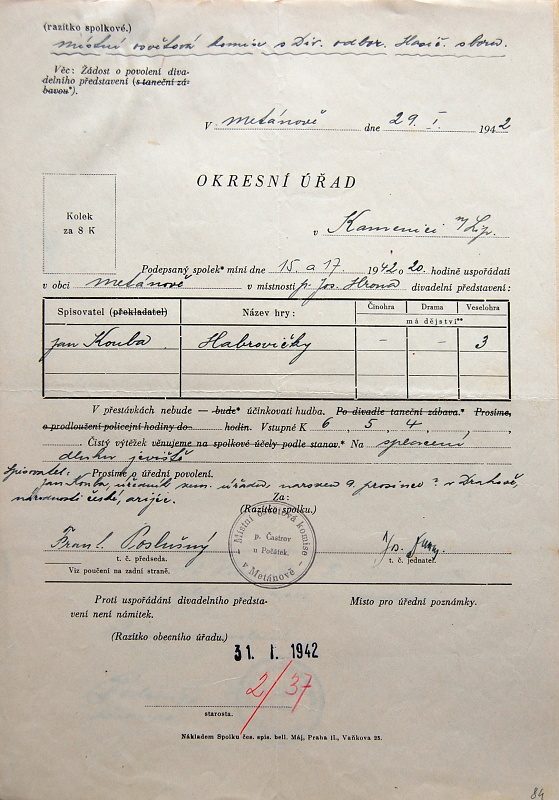 (razítko spolkové.)
Místní osvětová komise s Div. odbor. Hasič. sboru.
Věc: Žádost o povolení diva-
delního představení (s taneční zá-
bavou*).
V Metánově dne 29. I. 1942
OKRESNÍ ÚŘAD
Kolek
za 8 K
v Kamenici n/Lip.
Podepsaný spolek* míní dne 15. a 17. 1942 o 20. hodině uspořádati
v obci Metánově v místnosti p. Jos. Hrona divadelní představení:
Spisovatel (překladatel) Název hry: Činohra Drama Veselohra
má dějství**
Jan Kouba Habrovičky - - 3
V přestávkách nebude — bude* účinkovati hudba. Po divadle taneční zábava.* Prosíme,
o prodloužení policejní hodiny do hodin. Vstupné K 6, 5, 4, , ,
Čistý výtěžek věnujeme na spolkové účely podle stanov.* Na splacení
dluhu jeviště
Prosíme o úřední povolení.
Spisovatel: Jan Kouba, úředník zem. úřadu narozen 9. prosince ? v Drahově,
národnosti české, arijec.
Za:
(Razítko spolku.)
Místní osvětová komise
p. Častrov
u Počátek
v Metánově
Frant. Poslušný Jos.
t. č. předseda. t. č. jednatel.
Viz poučení na zadní straně.
Proti uspořádání divadelního předsta-
vení není námitek.
Místo pro úřední poznámky.
(Razítko obecního úřadu.)
31. I. 1942
2/37
starosta.
Nákladem Spolku čes. spis. bell. Máj, Praha II., Vaňkova 25.
84